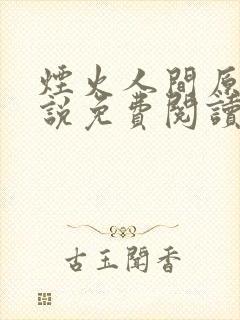 煙火人間原
說免費閱讀
古玉聞香